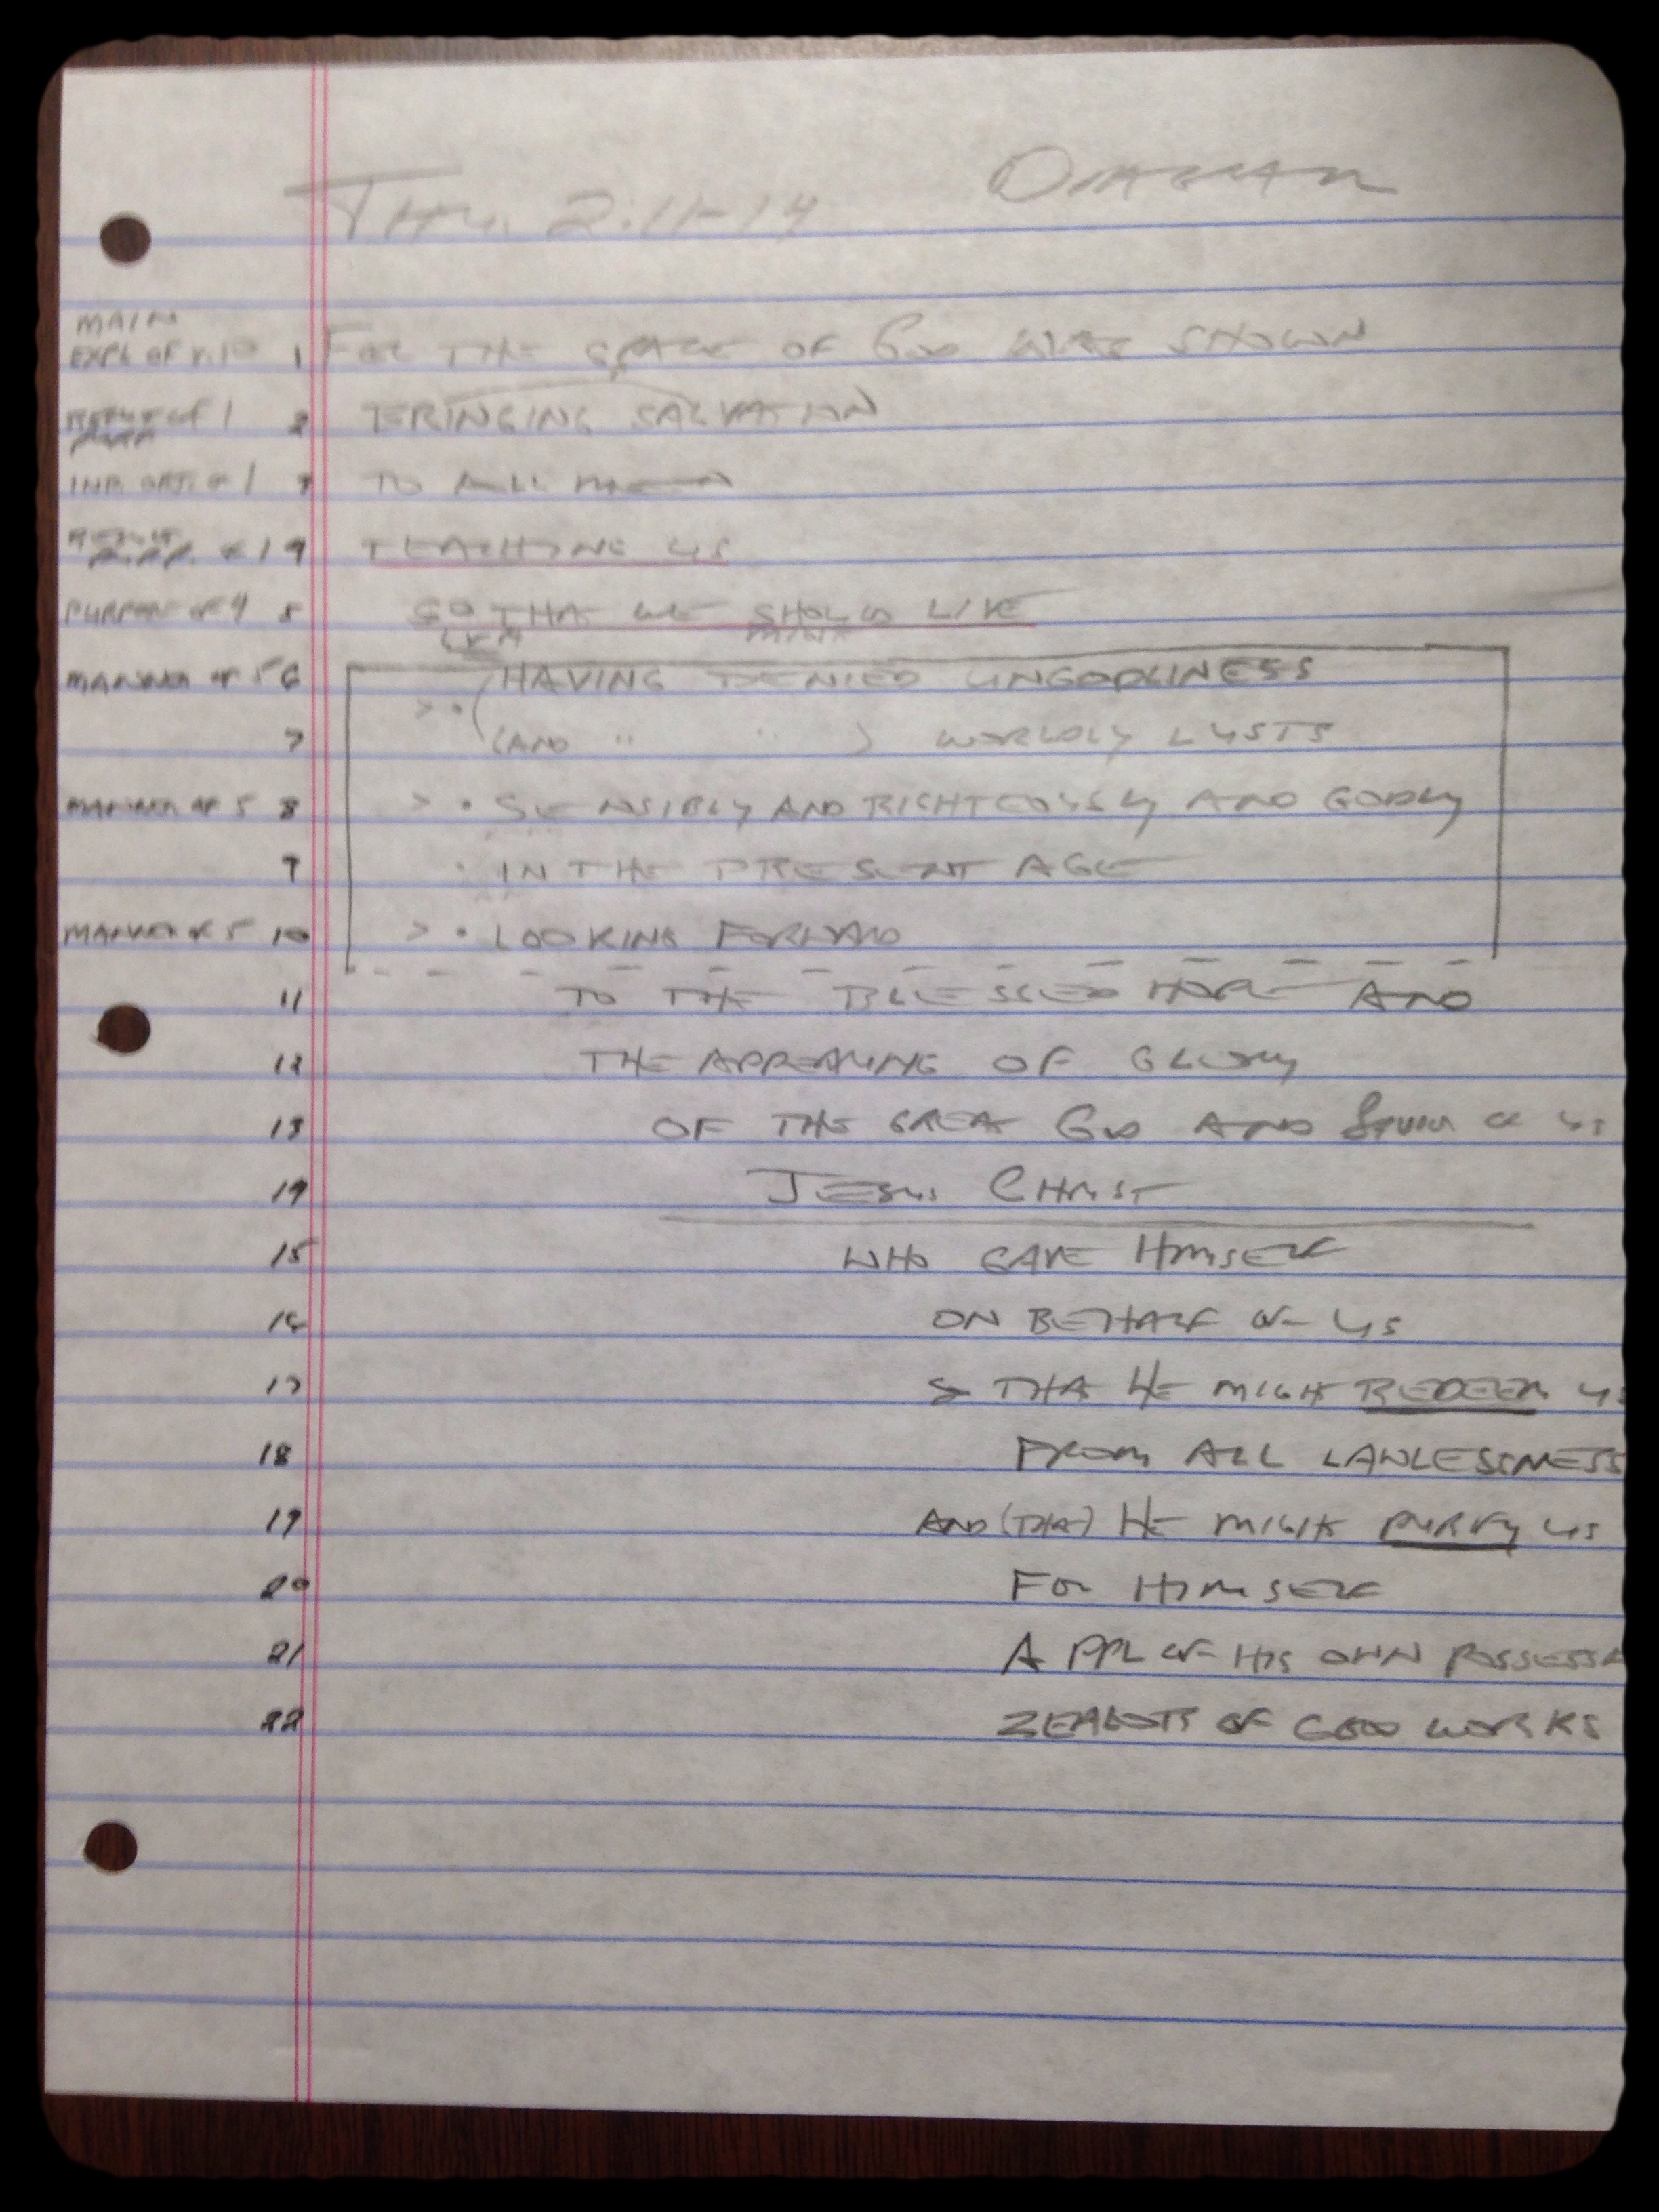 Titus 2:11-14 Diagram
MAIN
EXPL OF V.10 1 FOR THE GRACE OF GOD WAS SHOWN
RESULT OF 1 2 BRINGING SALVATION
IND. OBJ. OF 1 3 TO ALL MEN
RESULT
OF 1 4 TEACHING US
PURPOSE OF 4 5 SO THAT WE SHOULD LIVE
MANNER OF 5 6 > • (HAVING DENIED UNGODLINESS
7 (AND " " ) WORLDLY LUSTS
MANNER OF 5 8 > • SENSIBLY AND RIGHTEOUSLY AND GODLY
9 • IN THE PRESENT AGE
MANNER OF 5 10 > • LOOKING FORWARD
11 TO THE BLESSED HOPE AND
12 THE APPEARING OF GLORY
13 OF THE GREAT GOD AND SAVIOR OF US
14 JESUS CHRIST
15 WHO GAVE HIMSELF
16 ON BEHALF OF US
17 SO THAT HE MIGHT REDEEM US
18 FROM ALL LAWLESSNESS
19 AND (THAT) HE MIGHT PURIFY US
20 FOR HIMSELF
21 A PPL OF HIS OWN POSSESS
22 ZEALOTS OF GOOD WORKS